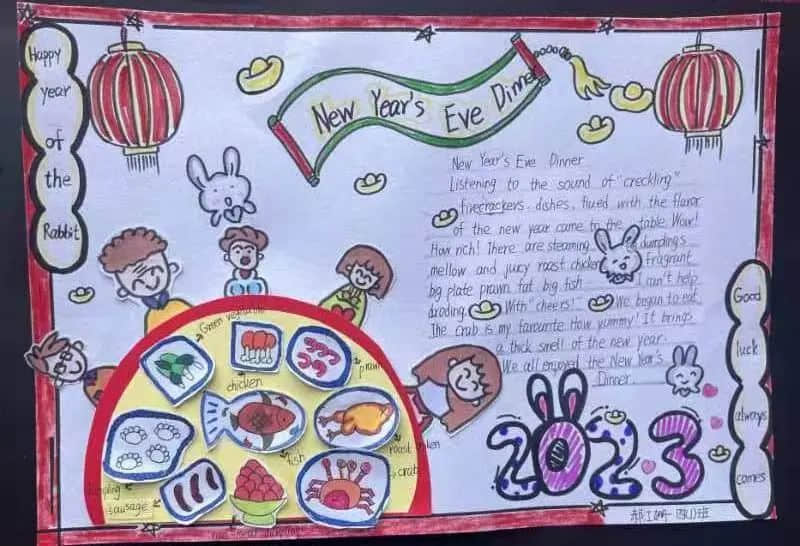 Happy
year
of
the
Rabbit
New Year's Eve Dinne
New Year's Eve Dinner
Listening to the sound of "creckling"
firecrackers, dishes, fixed with the flavor
of the new year came to the table. Wow!
How rich! There are steaming dumplings
mellow and juicy roast chicken fragrant
big plate prawn fat big fish I can't help
droding. With "cheers!" We began to eat
The crab is my favourite How yummy! It brings
a thick smell of the new year.
We all enjoyed the New Year's
Dinner.
Good
luck
always
comes
Green vegetable
chicken
prawn
fish
roast
crab
sausage
2023